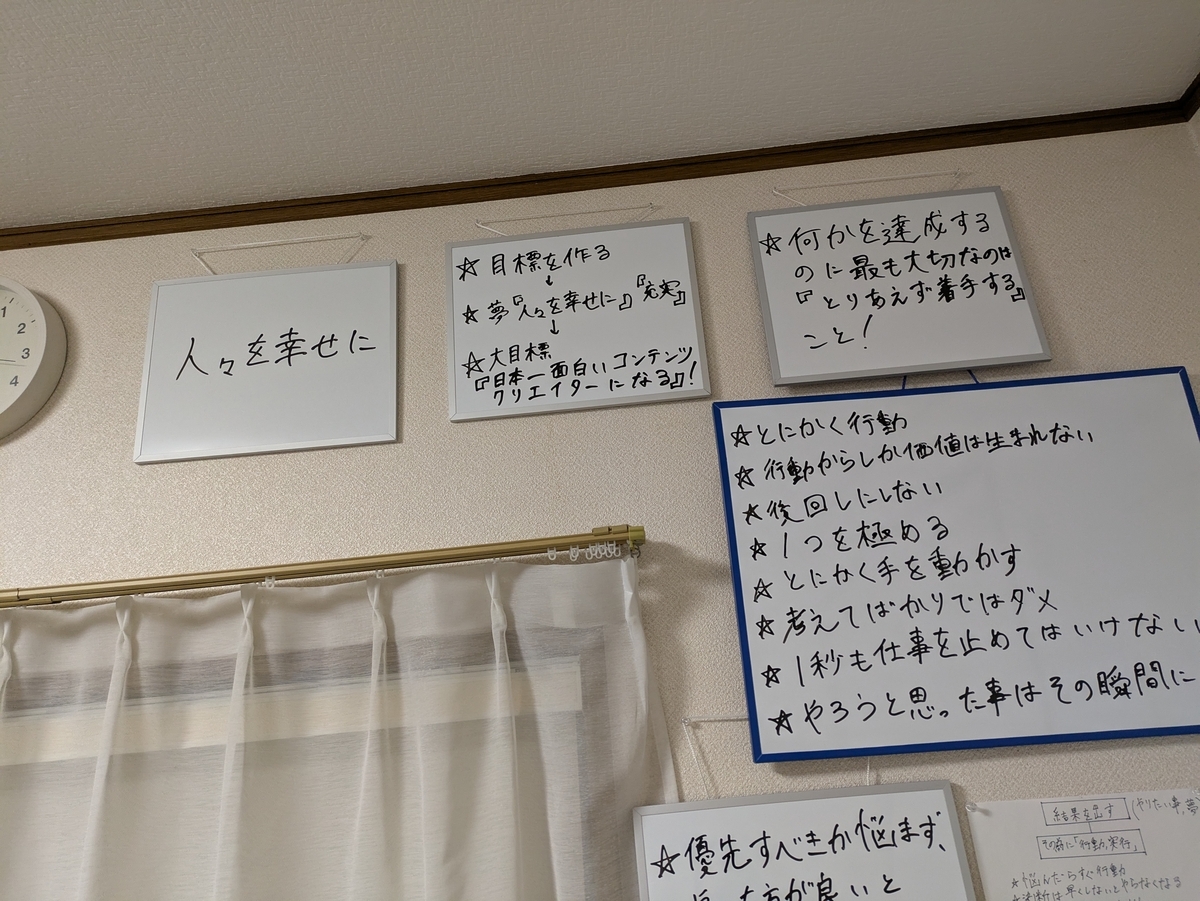 1
2
3
4
人々を幸せに
☆目標を作る
↓
☆夢『人々を幸せに』『充実』
↓
☆大目標
『日本一面白いコンテンツ
クリエイターになる』!
☆何かを達成する
のに最も大切なのは
『とりあえず着手する』
こと!
☆とにかく行動
☆行動からしか価値は生まれない
☆後回しにしない
☆1つを極める
☆とにかく手を動かす
☆考えてばかりではダメ
☆1秒も仕事を止めてはいけない
☆やろうと思った事はその瞬間に
☆優先すべきか悩まず、
た方が良いと
結果を出す(やりたい事、夢
その為に「行動、実行」
☆悩んだらすぐ行動
☆決断は早くしないとやらなくなる